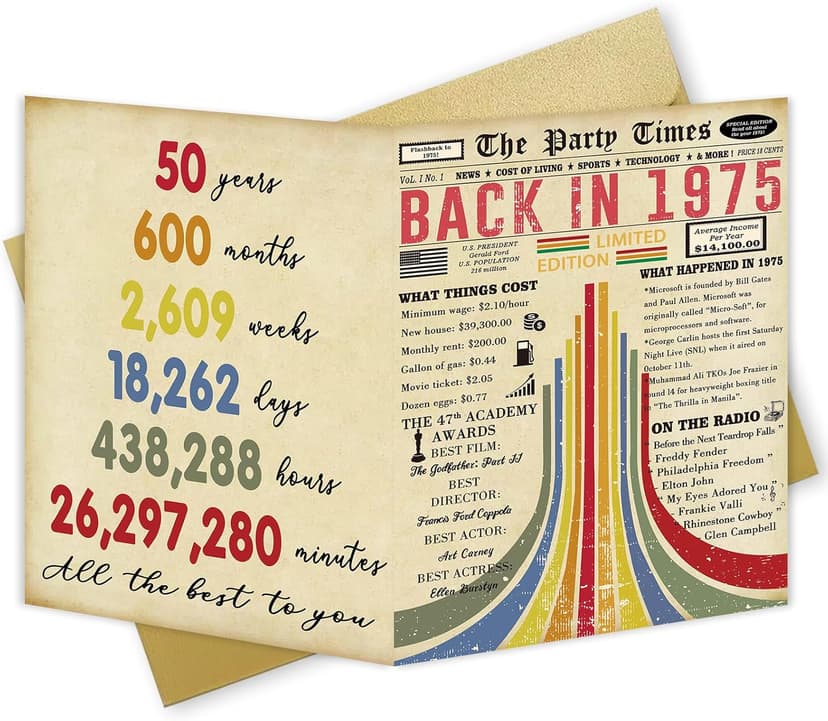 50 years
600 months
2,609 weeks
18,262 days
438,288 hours
26,297,280 minutes
All the best to you
Flashback to
1975!
The Party Times
SPECIAL EDITION
Read all about
the year 1975!
VoL. I No. 1
NEWS ★ COST OF LIVING ★ SPORTS ★ TECHNOLOGY ★ & MORE !
PRICE 18 CENTS
BACK IN 1975
U.S. PRESIDENT
Gerald Ford
U.S. POPULATION
216 million
LIMITED
EDITION
Average Income
Per Year
$14,100.00
WHAT THINGS COST
Minimum wage: $2.10/hour
New house: $39,300.00
Monthly rent: $200.00
Gallon of gas: $0.44
Movie ticket: $2.05
Dozen eggs: $0.77
THE 47th ACADEMY
AWARDS
BEST FILM:
The Godfather: Part II
BEST
DIRECTOR:
Francis Ford Coppola
BEST ACTOR:
Art Carney
BEST ACTRESS:
Ellen Burstyn
WHAT HAPPENED IN 1975
*Microsoft is founded by Bill Gates
and Paul Allen. Microsoft was
originally called "Micro-Soft", for
microprocessors and software.
*George Carlin hosts the first Saturday
Night Live (SNL) when it aired on
October 11th.
*Muhammad Ali TKOs Joe Frazier in
round 14 for heavyweight boxing title
in "The Thrilla in Manila".
ON THE RADIO
" Before the Next Teardrop Falls "
- Freddy Fender
" Philadelphia Freedom "
- Elton John
" My Eyes Adored You "
- Frankie Valli
" Rhinestone Cowboy "
- Glen Campbell